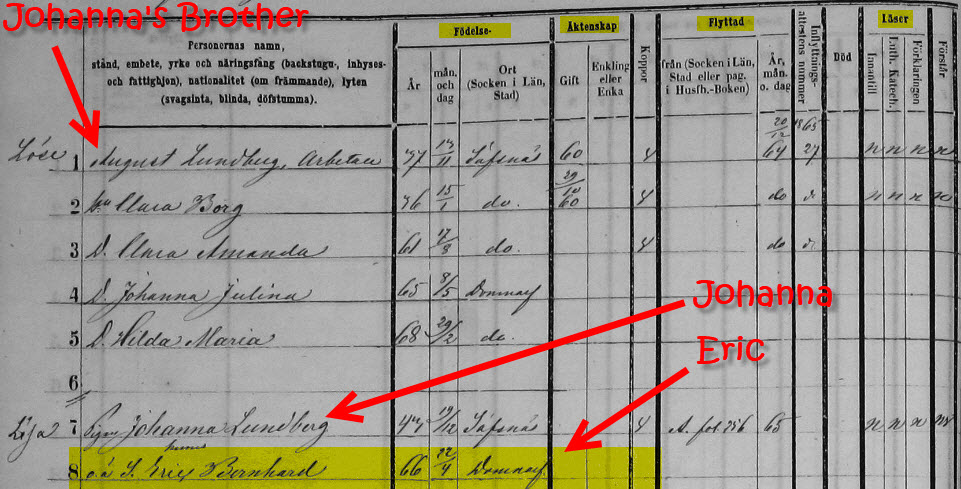 Johanna's Brother
Personernas namn,
stånd, embete, yrke och näringsfång (backstugu-, inhyses-
och fattighjon), nationalitet (om främmande), lyten
(svagsinta, blinda, döfstumma).
Födelse-
År
mån. och dag
Ort
(Socken i Län,
Stad)
Äktenskap
Gift
Enkling
eller
Enka
Koppor
Flyttad
från (Socken i Län,
Stad eller pag.
i Husfh.-Boken)
År,
mån.
o. dag
Inflyttnings-
attestens nummer
Död
Läser
Innantill
Luth. Katech.
Förklaringen
Förstår
20/12 1865
1 August Lundberg, Arbetare 37 13/11 Säfsnäs 60 4 64 27 n n n n
2 Clara Borg 36 15/1 do. 29/10 60 4 do n n n n
3 D. Clara Amanda 61 17/8 do. 4 do
4 D. Johanna Julina 65 8/5
5 D. Hilda Maria 68 29/2 do.
6
Johanna
Eric
7 Johanna Lundberg 44 19/12 Säfsnäs 4 A. fol 256 65 n n n
8 S. Eric Bernhard 66 22/4